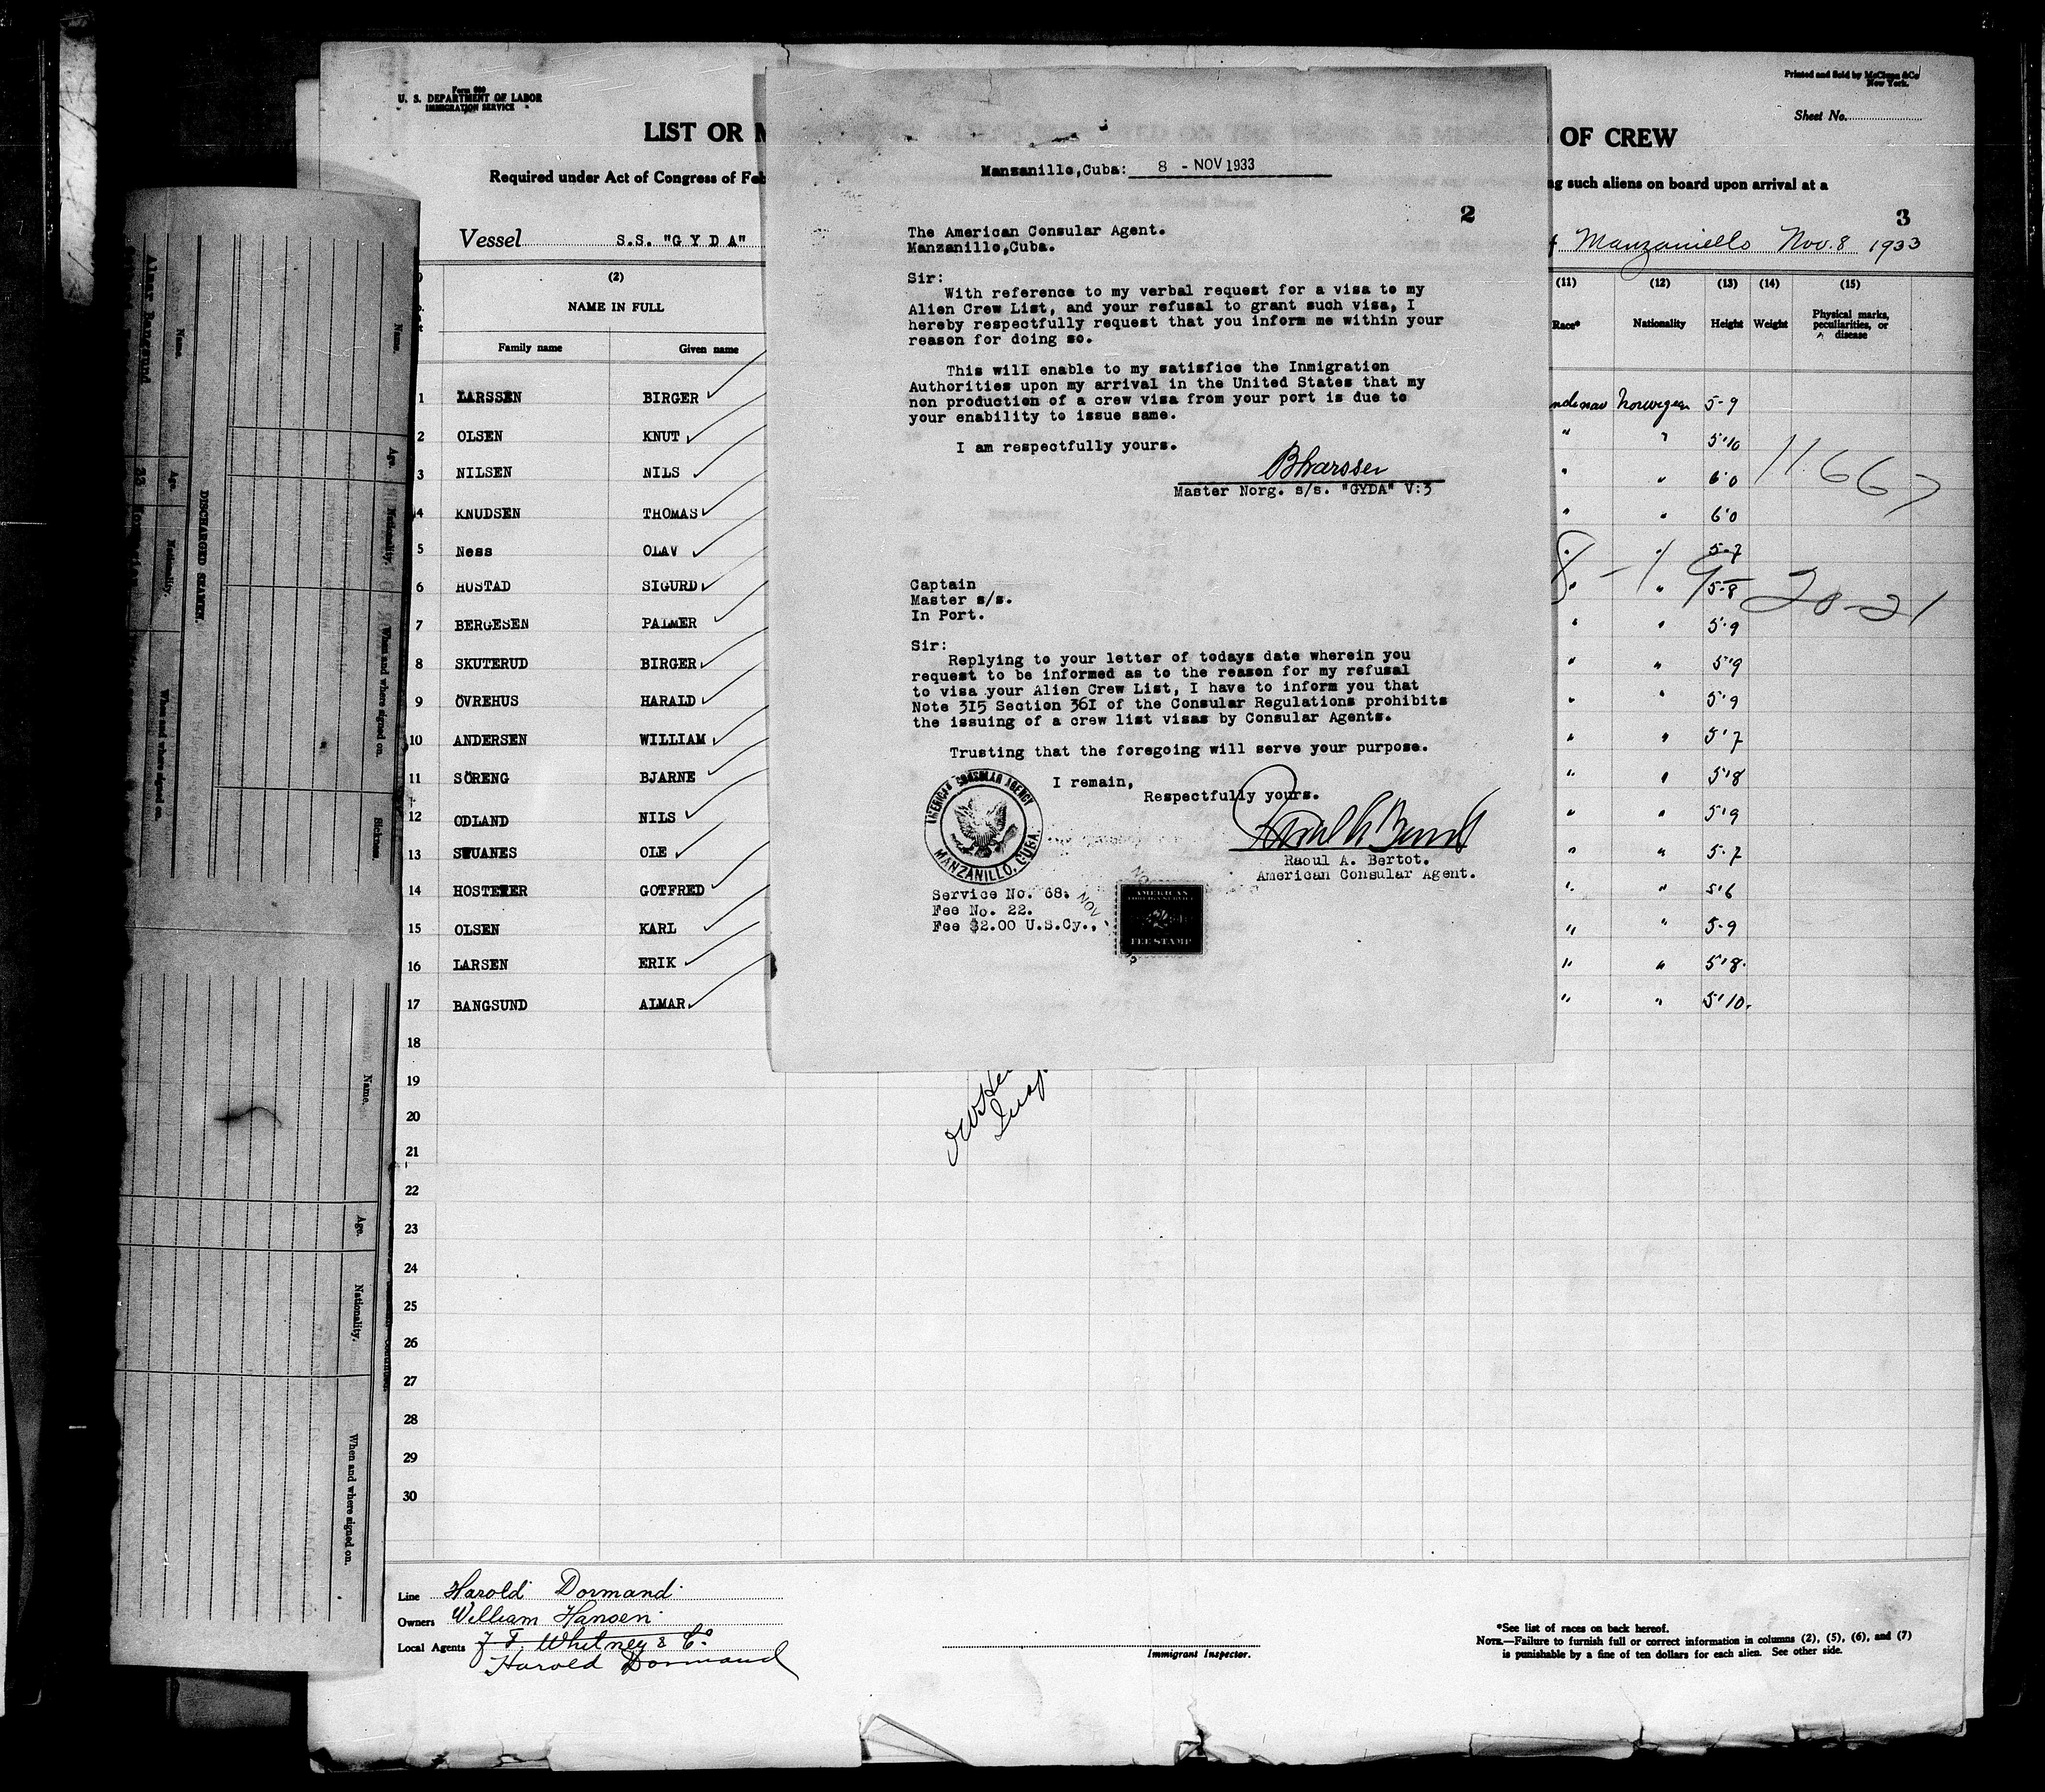 Form 680
U. S. DEPARTMENT OF LABOR
IMMIGRATION SERVICE
Printed and Sold by McClunn & Co
New York.
Sheet No.
LIST OR
OF CREW
Required under Act of Congress of Feb
ng such aliens on board upon arrival at a
3
Vessel S.S. "G Y D A"
Manzaniello Nov. 8 1933
(2)
NAME IN FULL
Family name Given name
(11) (12) (13) (14) (15)
Race* Nationality Height Weight Physical marks, peculiarities, or disease
1 LARSSEN BIRGER Norwegian 5-9
2 OLSEN KNUT " " 5'10
3 NILSEN NILS " " 6'0
4 KNUDSEN THOMAS " " 6'0
5 Ness OLAV " " 5-7
6 HUSTAD SIGURD " " 5-8
7 BERGESEN PALMER " " 5'9
8 SKUTERUD BIRGER " " 5'9
9 ÖVREHUS HARALD " " 5'9
10 ANDERSEN WILLIAM " " 5'7
11 SÖRENG BJARNE " " 5'8
12 ODLAND NILS " " 5'9
13 STUANES OLE " " 5-7
14 HOSTETER GOTFRED " " 5'6
15 OLSEN KARL " " 5-9
16 LARSEN ERIK " " 5'8
17 BANGSUND ALMAR " " 5'10
18
19
20
21
22
23
24
25
26
27
28
29
30
20-21
Manzanillo,Cuba: 8 - NOV 1933
2
The American Consular Agent.
Manzanillo,Cuba.
Sir:
With reference to my verbal request for a visa to my
Alien Crew List, and your refusal to grant such visa, I
hereby respectfully request that you inform me within your
reason for doing so.
This will enable to my satisfice the Inmigration
Authorities upon my arrival in the United States that my
non production of a crew visa from your port is due to
your enability to issue same.
I am respectfully yours.
BLarssen
Master Norg. s/s. "GYDA" V:3
Captain
Master s/s.
In Port.
Sir:
Replying to your letter of todays date wherein you
request to be informed as to the reason for my refusal
to visa your Alien Crew List, I have to inform you that
Note 315 Section 361 of the Consular Regulations prohibits
the issuing of a crew list visas by Consular Agents.
Trusting that the foregoing will serve your purpose.
I remain,
Respectfully yours.
AMERICAN CONSULAR AGENCY
MANZANILLO, CUBA.
Raoul A. Bertot.
American Consular Agent.
Service No. 68.
Fee No. 22.
Fee $2.00 U.S.Cy.,
NOV
AMERICAN
FOREIGN SERVICE
2
FEE STAMP
Line Harold Dormand
Owners William Hansen
Local Agents J. F. Whitney & Co.
Harold Dormand
Immigrant Inspector.
*See list of races on back hereof.
NOTE.—Failure to furnish full or correct information in columns (2), (5), (6), and (7)
is punishable by a fine of ten dollars for each alien. See other side.
Name. Age. Nationality. When and where signed on. Sickness.
DISCHARGED SEAMEN.
Name. Age. Nationality. When and where signed on.
Almar Bangsund
Name. Age. Nationality. When and where signed on.